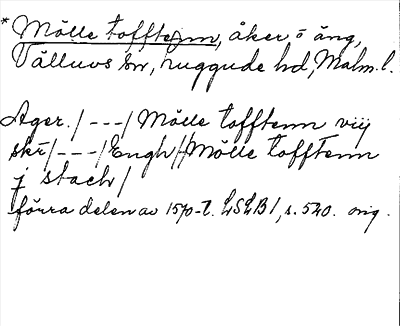 * Mölle tofftenn, åker o äng,
Välluvs sn, Luggude hd, Malm. l.
Ager. / - - - / Mölle tofftenn viij
skr / - - - / Engh // Mölle tofftenn
j stach /
förra delen av 1570-t. LSLB 1, s. 520. orig.